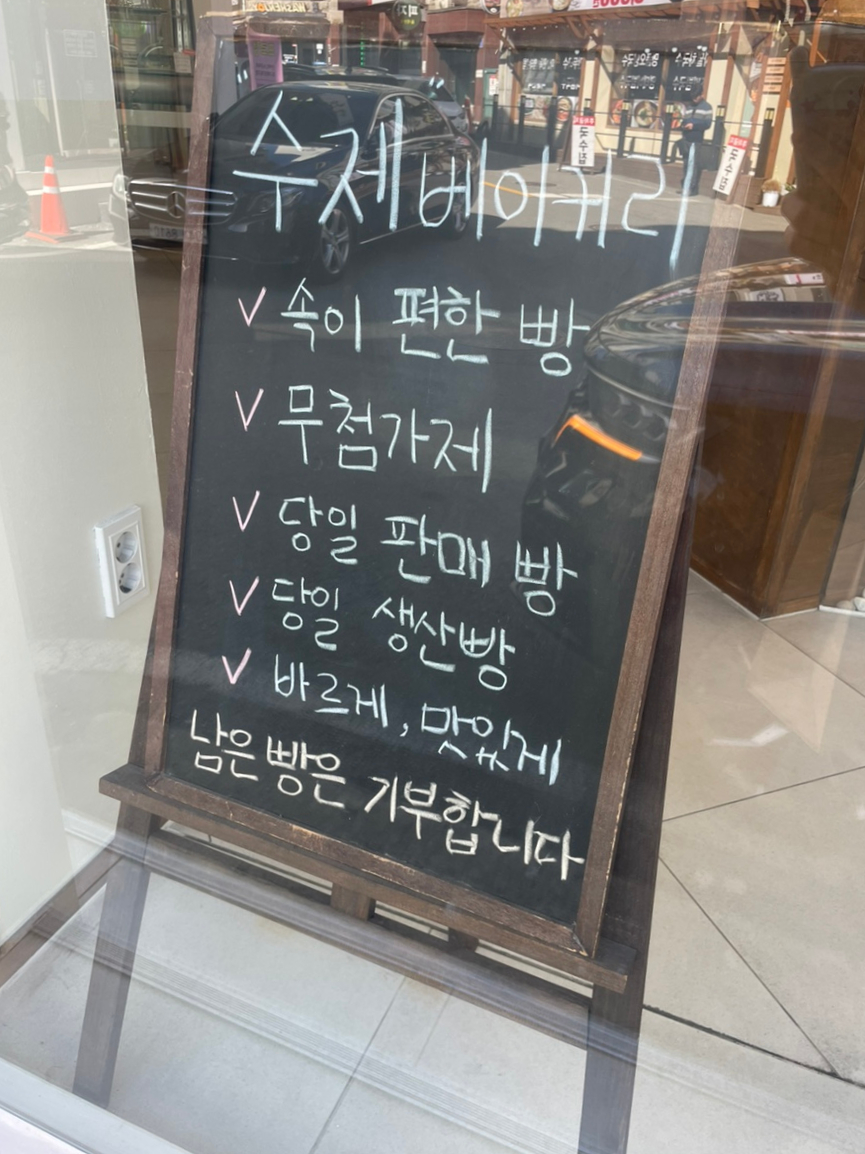 수제베이커리
✓ 속이 편한 빵
✓ 무첨가제
✓ 당일 판매 빵
✓ 당일 생산빵
✓ 바르게, 맛있게
남은빵은 기부합니다